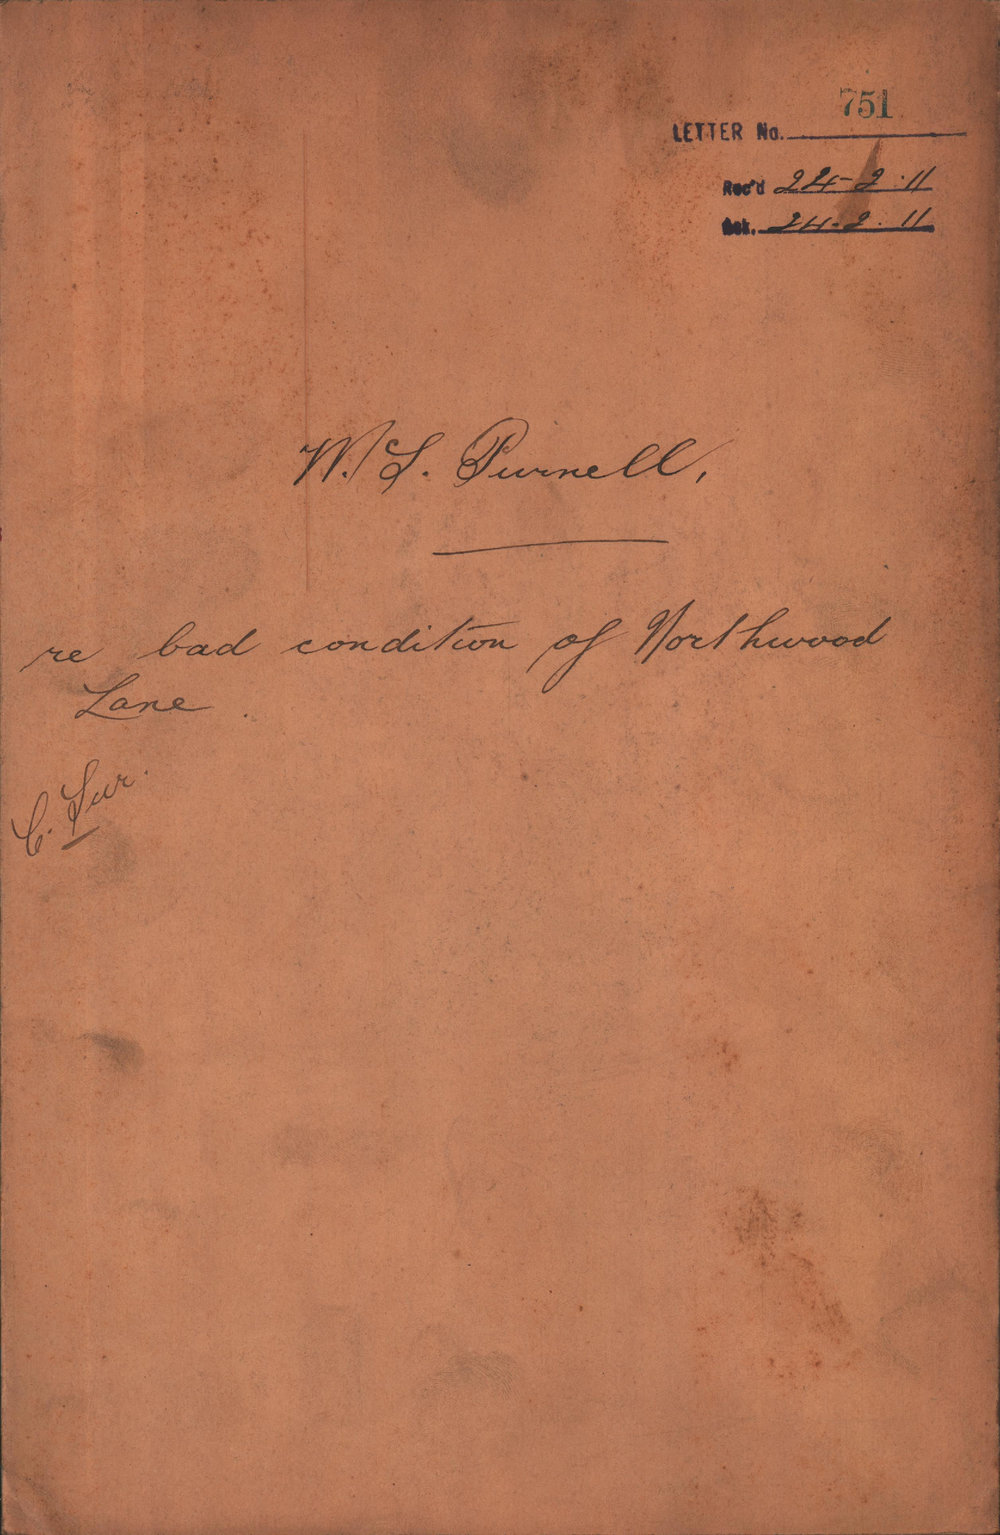 LETTER No. 751
Rec'd 24-2-11
Ack. 24.2.11
W. S. Purnell,
re bad condition of Northwood
Lane.
C. Sur.